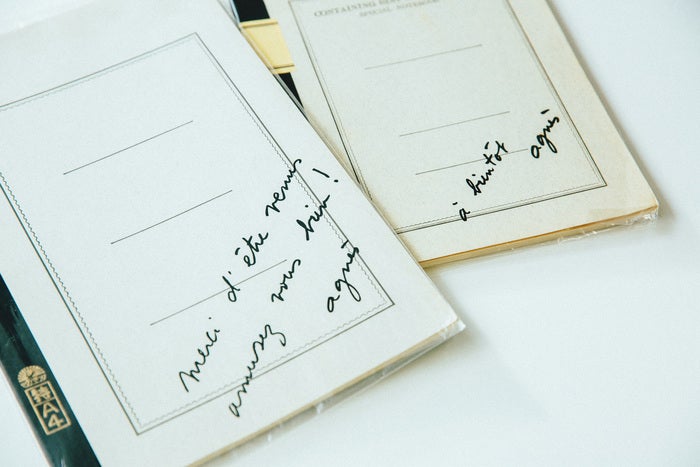 merci d'être venus
amusez vous bien !
agnès
特A4
CONTAINING
SPECIAL NOTEBOOK
à bientôt
agnès